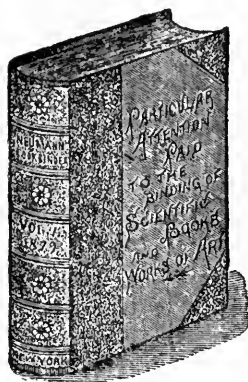 NEUMANN
VOL. III.
1879.
NEW YORK
PARTICULAR
ATTENTION
PAID
TO THE
BINDING OF
SCIENTIFIC
BOOKS
AND
WORKS OF ART